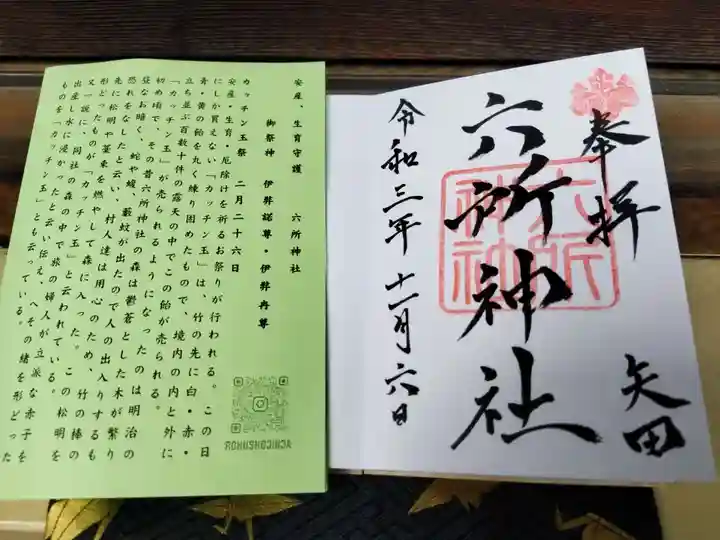 奉拝
矢田
六所神社
六所
神社
令和三年十一月六日
安産、生育守護 六所神社
御祭神 伊弉諾尊・伊弉冉尊
カッチン玉祭 二月二十六日
安産・生育・厄除けを祈るお祭りが行われる。この日
にしか買えない「カッチン玉」は、竹の先に白・赤・
青・黄の飴を丸く練り固めたもので、境内の内と外に
立ち並ぶ数百十件の露天の中でこの飴が売られる。
「カッチン玉」が売られるようになったのは明治の
初め頃で、その昔六所神社の森は鬱蒼とした木が繁り
昼なお暗く、蛇や蝮、藪蚊が出たので人の出入りするもの
恐れをなしたと云い、村人達は用心のため、竹の棒の
先に松明や藁束を燃やして森に入った。この松明を
形どったものが「カッチン玉」と云われている。
又一説に、同社の森の中で旅の婦人が立派な赤子を
出産し水に浸かったと云い伝え、へその緒を形どった
ものを「カッチン玉」とも云っている。